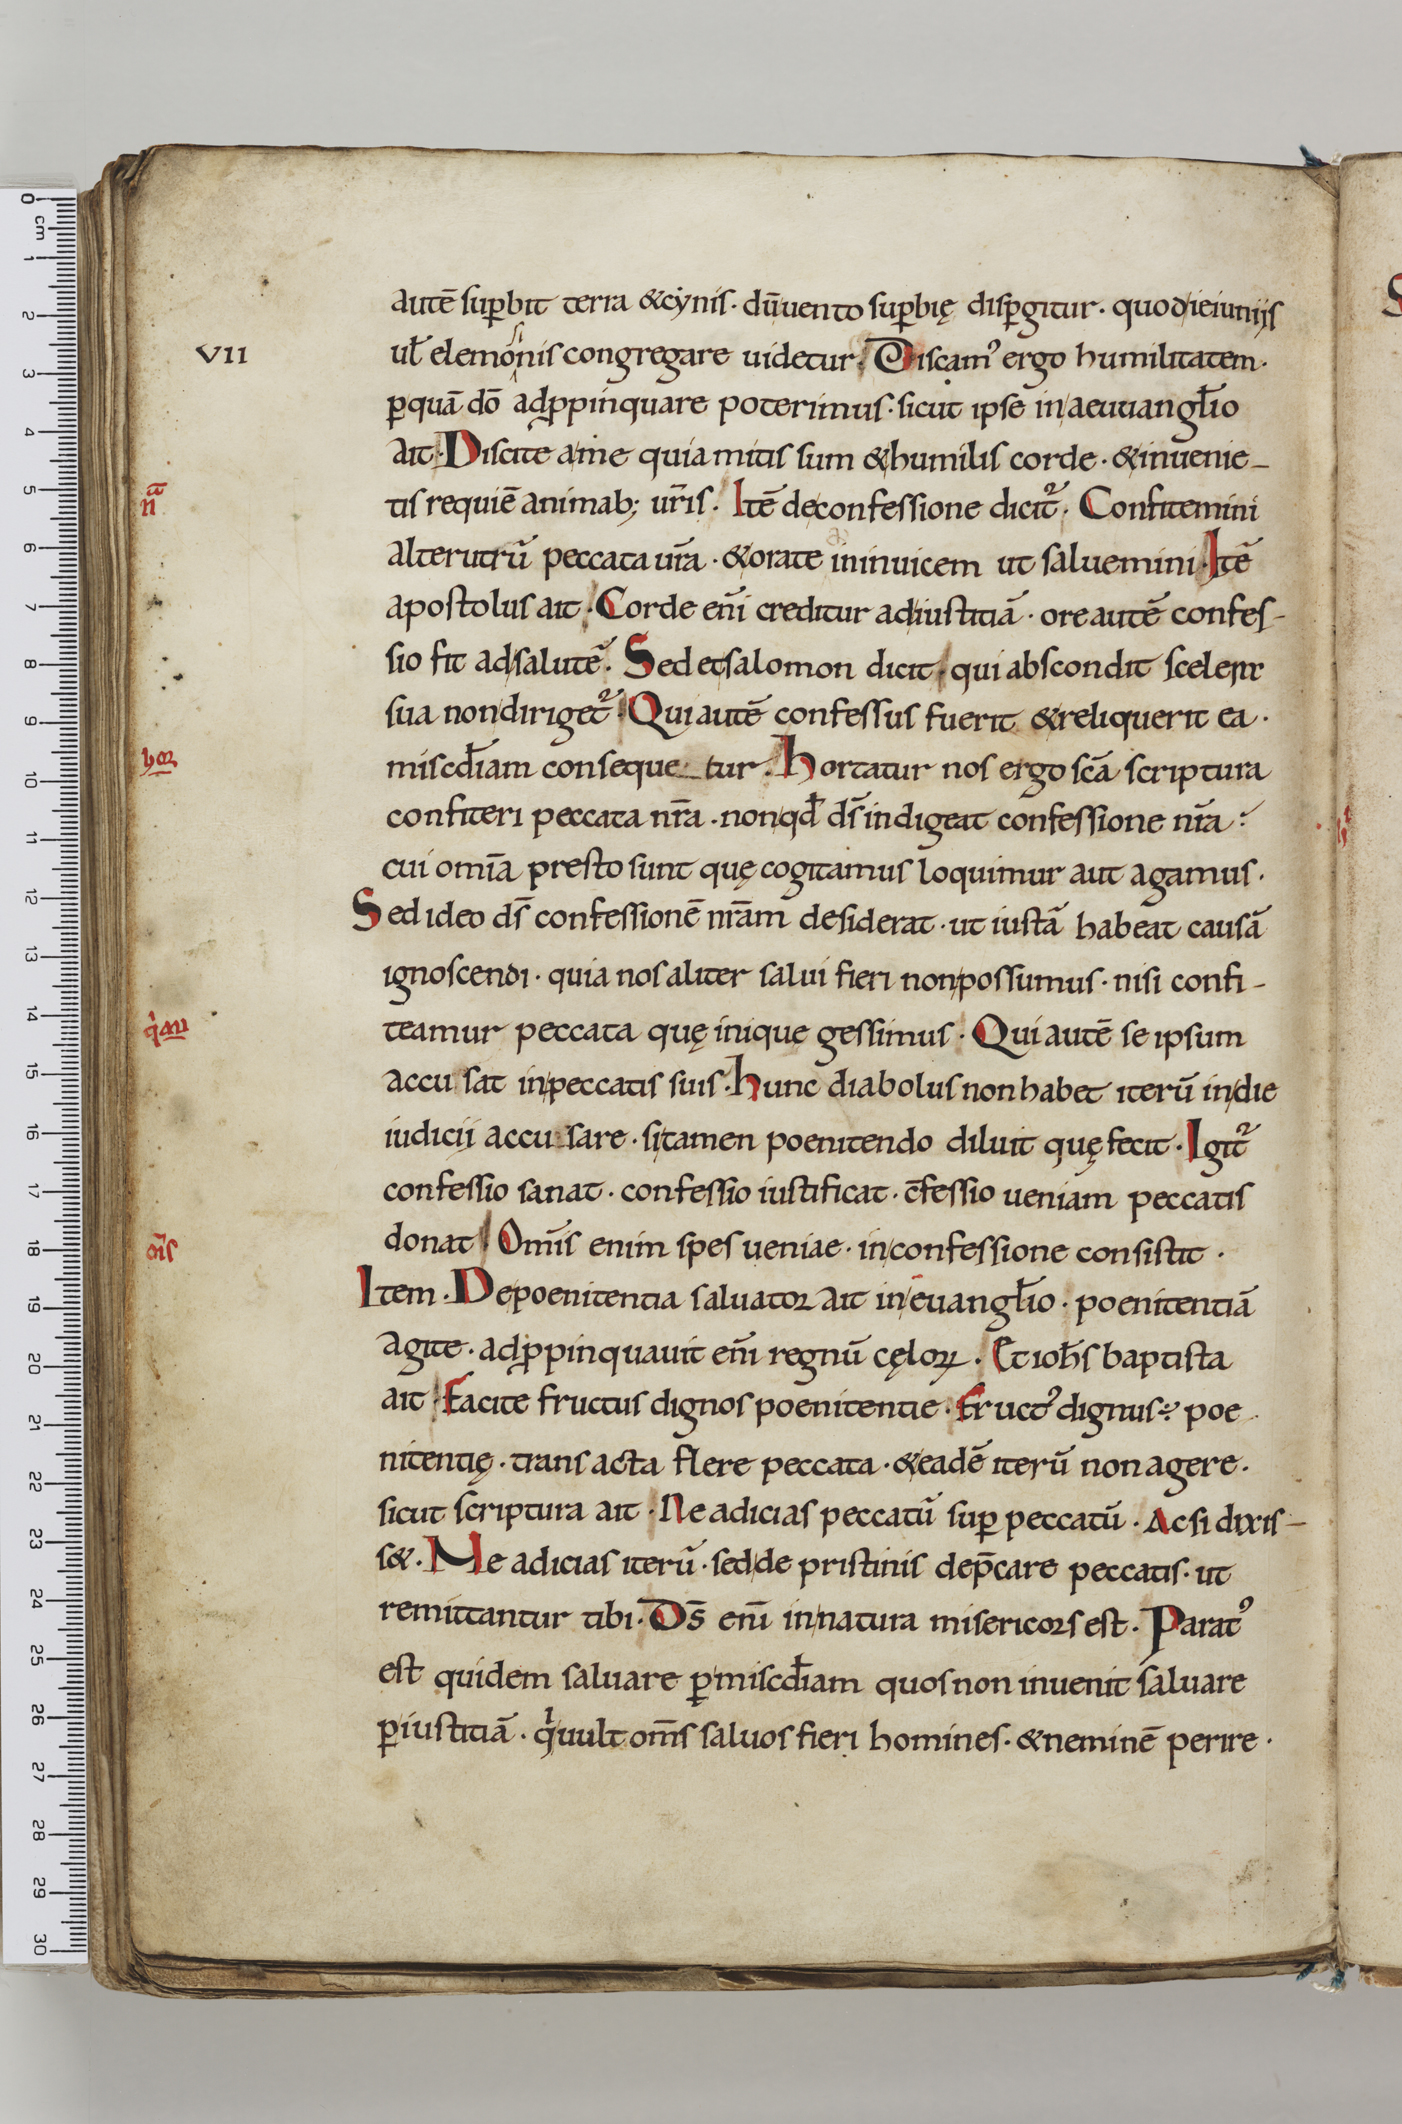 autē suꝑbit terra &cẏnis· dūuento suꝑbię disꝑgitur · quodieiuniis
VII
ul̄ elemosinis congregare uidetur. Discam᾽ ergo humilitatem·
ꝑquā dō adꝓpinquare poterimus · sicut ipse in aeuuangl̄io
ait· Discite a me quia mitis sum &humilis corde · &inuenie-
tis requiē animab; ur̄is. Itē deconfessione dicit᷑. Confitemini
alterutrū peccata ur̄a · &orate ininuicem ut saluemini· Itē
apostolus ait · Corde en̄i creditur adiustitiā · ore autē confes-
sio fit adsalutē. Sed etsalomon dicit · qui abscondit scelera
sua nondiriget᷑. Qui autē confessus fuerit &reliquerit ea ·
miscd̄iam conseque_tur. hortatur nos ergo scā scriptura
confiteri peccata nr̄a · nonqd̄ ds̄ indigeat confessione nr̄a
cui omīa presto sunt quę cogitamus loquimur aut agamus ·
Sed ideo ds̄ confessionē nr̄am desiderat · ut iustā habeat causā
ignoscendi · quia nos aliter salui fieri nonpossumus · nisi confi-
teamur peccata quę inique gessimus · Qui autē se ipsum
accu sat inpeccatis suis · hunc diabolus nonhabet iterū indie
iudicii accu sare · sitamen poenitendo diluit quę fecit · Igit᷑
confessio sanat · confessio iustificat · c̄fessio ueniam peccatis
donat · Omīs enim spes ueniae · inconfessione consistit ·
Item · Depoenitentia saluator ait in euangl̄io · poenitentiā
agite · adꝓpinquauit en̄i regnū cęloꝝ · Et ioh̄s baptista
ait · Facite fructus dignos poenitentie · Fruct᾽ dignus ÷ poe
nitentię · trans acta flere peccata · &eadē iterū non agere ·
sicut scriptura ait · Ne adicias peccatū suꝑ peccatū · Ac si dixis-
s&. Ne adicias iterū · sed de pristinis dep̄care peccatis · ut
remittantur tibi · Ds̄ enī innatura misericors est · Parat᾽
est quidem saluare ꝑmiscd̄iam quos non inuenit saluare
ꝑiustitiā · qͥ uult om̄s saluos fieri homines · &neminē perire ·
n̄a
hor
qͥ au
oīs